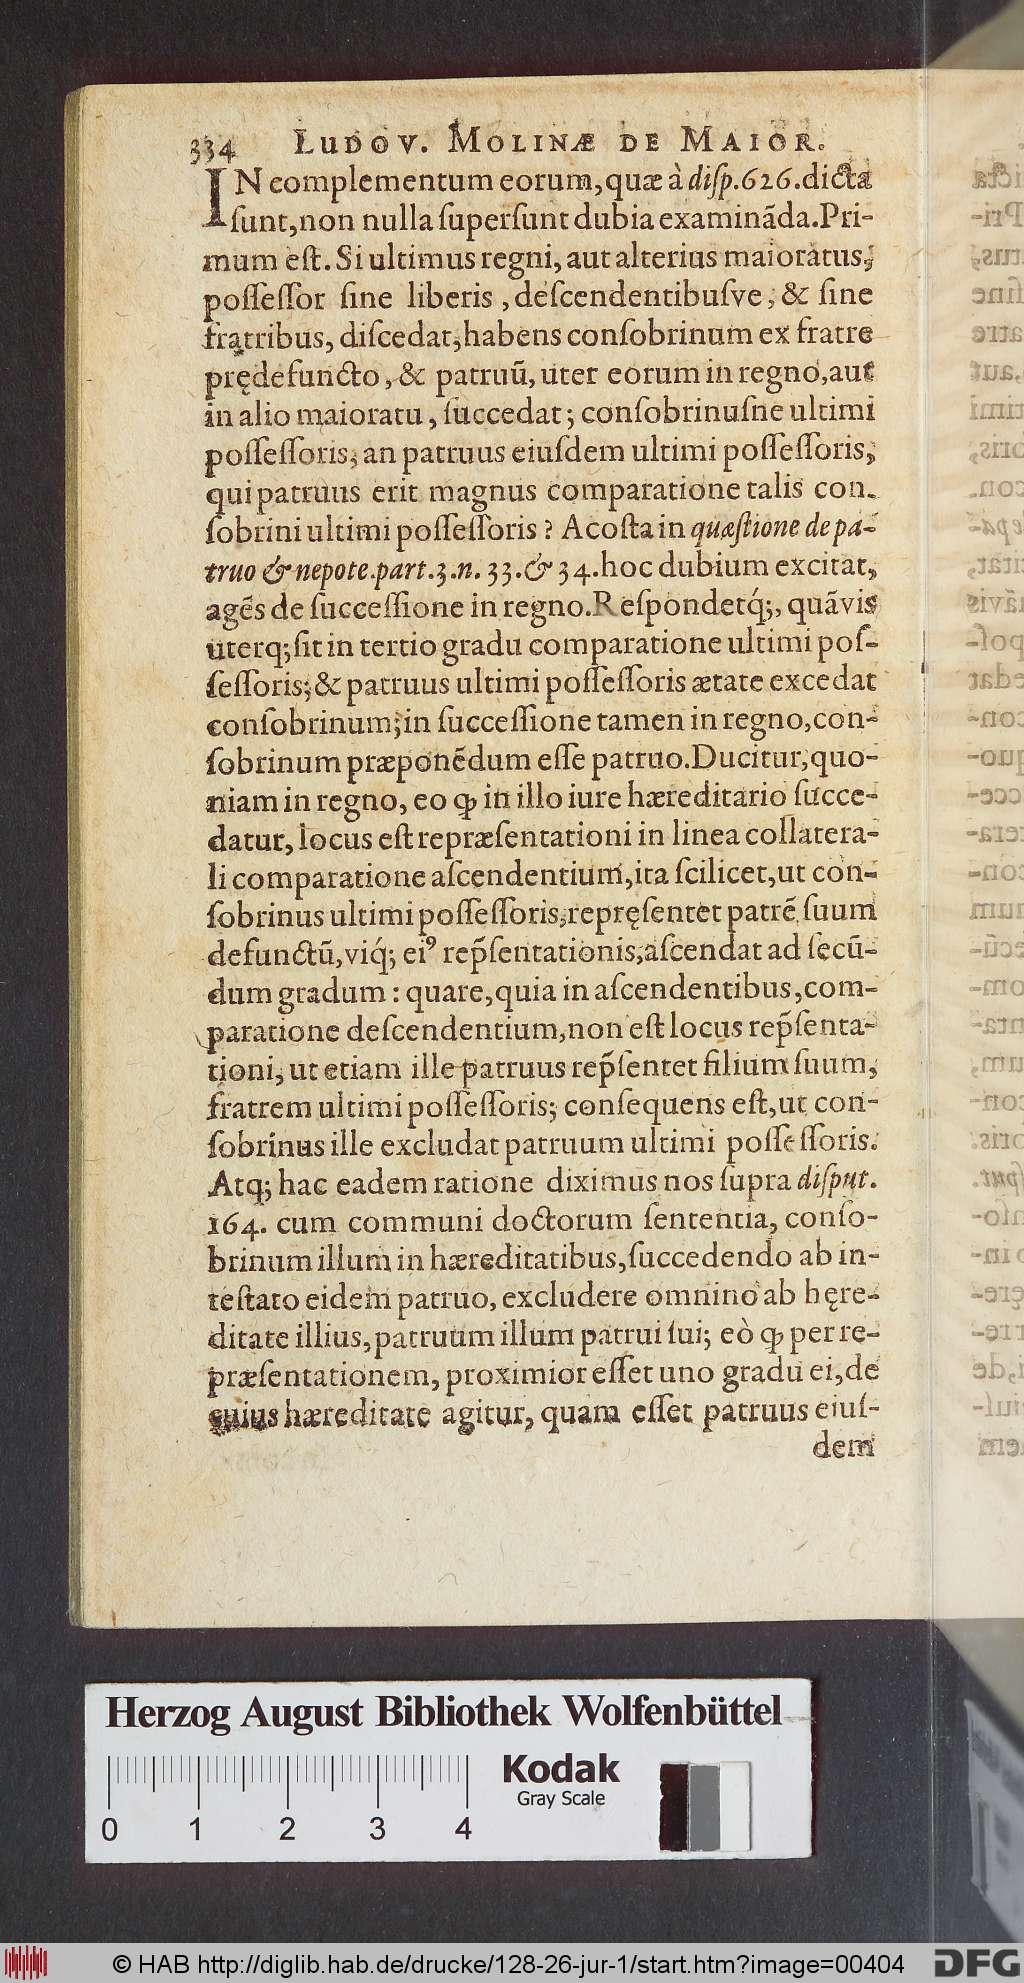 334 LUDOV. MOLINÆ DE MAIOR.
IN complementum eorum, quæ à diſp. 626. dicta
ſunt, non nulla ſuperſunt dubia examinãda. Pri-
mum eſt. Si ultimus regni, aut alterius maioratus,
poſſeſſor ſine liberis, deſcendentibuſve, & ſine
fratribus, diſcedat, habens conſobrinum ex fratre
prędefuncto, & patruũ, uter eorum in regno, aut
in alio maioratu, ſuccedat; conſobrinuſne ultimi
poſſeſſoris, an patruus eiuſdem ultimi poſſeſſoris,
qui patruus erit magnus comparatione talis con-
ſobrini ultimi poſſeſſoris? Acoſta in quæſtione de pa-
truo & nepote. part. 3. n. 33. & 34. hoc dubium excitat,
agẽs de ſucceſſione in regno. Reſpondetq́;, quãvis
uterq; ſit in tertio gradu comparatione ultimi poſ-
ſeſſoris; & patruus ultimi poſſeſſoris ætate excedat
conſobrinum; in ſucceſſione tamen in regno, con-
ſobrinum præponẽdum eſſe patruo. Ducitur, quo-
niam in regno, eo ꝙ in illo iure hæreditario ſucce-
datur, locus eſt repræſentationi in linea collatera-
li comparatione aſcendentium, ita ſcilicet, ut con-
ſobrinus ultimi poſſeſſoris, repręſentet patrẽ ſuum
defunctũ, viq́; eiꝰ rep̃ſentationis, aſcendat ad ſecũ-
dum gradum: quare, quia in aſcendentibus, com-
paratione deſcendentium, non eſt locus rep̃ſenta-
tioni, ut etiam ille patruus rep̃ſentet filium ſuum,
fratrem ultimi poſſeſſoris; conſequens eſt, ut con-
ſobrinus ille excludat patruum ultimi poſſeſſoris.
Atq; hac eadem ratione diximus nos ſupra diſput.
164. cum communi doctorum ſententia, conſo-
brinum illum in hæreditatibus, ſuccedendo ab in-
teſtato eidem patruo, excludere omnino ab hęre-
ditate illius, patruum illum patrui ſui; eò ꝙ per re-
præſentationem, proximior eſſet uno gradu ei, de
cuius hæreditate agitur, quam eſſet patruus eiuſ-
dem
Herzog August Bibliothek Wolfenbüttel
Kodak
Gray Scale
0 1 2 3 4
© HAB http://diglib.hab.de/drucke/128-26-jur-1/start.htm?image=00404
DFG